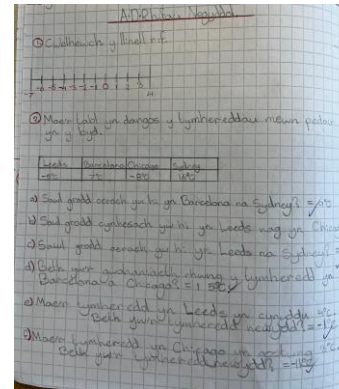 ① Cwblhewch y llinell rif.
-7 -6 -5 -4 -3 -2 -1 0 1 2 3 4
② Mae'r tabl yn dangos y tymhereddau mewn
yn y byd.
Leeds Barcelona Chicago Sydney
7°c -8°c
a) Sawl gradd oerach yw hi yn Barcelona na Sydney? =
b) Sawl gradd cynhesach yw hi yn Leeds nag yn Chicago
c) Sawl gradd oerach yw hi yn Leeds na Sydney? =
d) Beth yw'r gwahaniaeth rhwng y tymheredd yn
Barcelona a Chicago? = 15°c
e) Mae'r tymheredd yn Leeds yn cynyddu 4°c.
Beth yw'r tymheredd newydd? = -1°c
f) Mae'r tymheredd yn Chicago yn
Beth yw'r tymheredd newydd? =